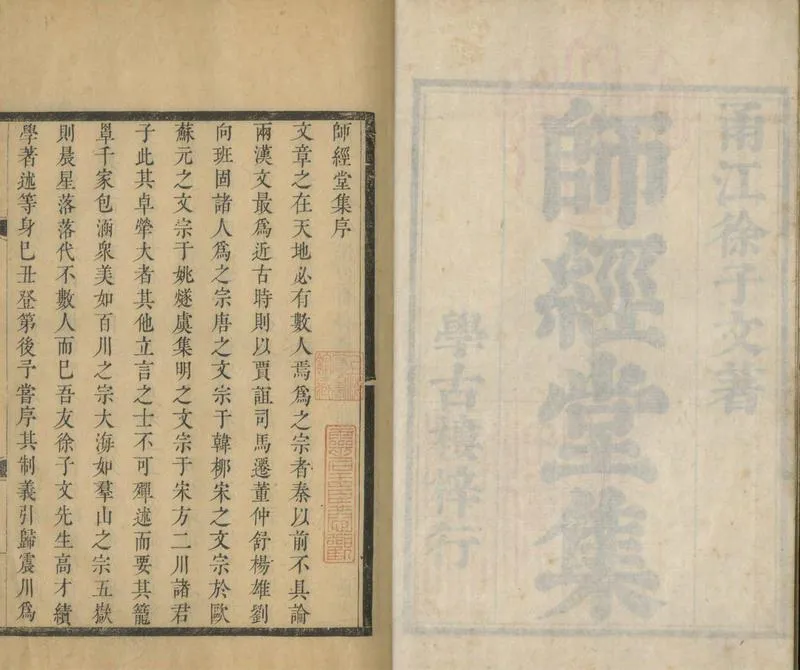 甬江徐子文著
師經堂集
學古樓梓行
師經堂集序
文章之在天地必有數人焉爲之宗者秦以前不具論
兩漢文最爲近古時則以賈誼司馬遷董仲舒楊雄劉
向班固諸人爲之宗唐之文宗于韓柳宋之文宗於歐
蘇元之文宗于姚燧虞集明之文宗于宋方二川諸君
子此其卓犖大者其他立言之士不可殫述而要其籠
罩千家包涵衆美如百川之宗大海如羣山之宗五嶽
則晨星落落代不數人而已吾友徐子文先生高才績
學著述等身己丑登第後予嘗序其制義引歸震川爲